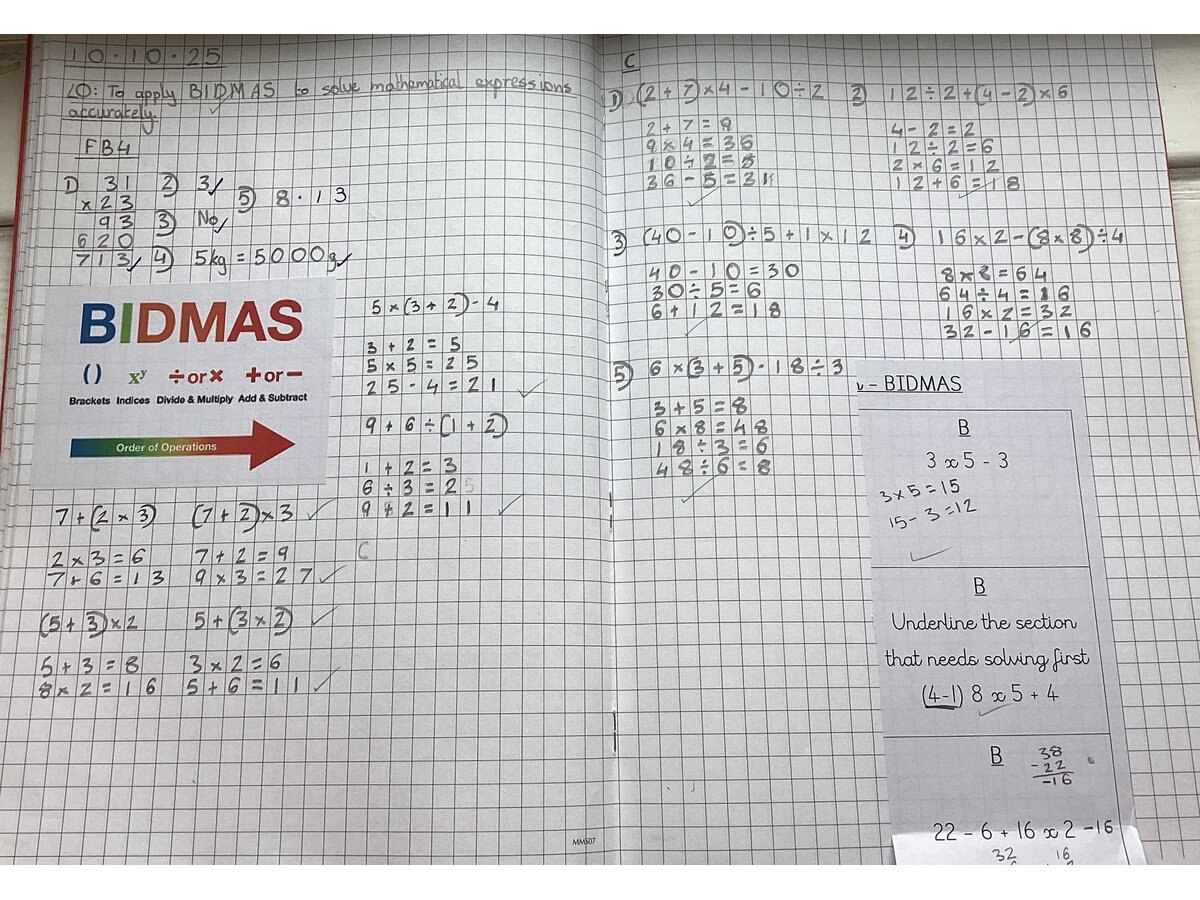 10.10.25
LO: To apply BIDMAS to solve mathematical expressions
accurately.
FB4
1) 31
×23
93
620
713
2) 3
3) No
4) 5kg = 5000g
5) 8.13
BIDMAS
() xʸ ÷or× +or−
Brackets Indices Divide & Multiply Add & Subtract
Order of Operations
5×(3+2)-4
3+2=5
5×5=25
25-4=21
9+6÷(1+2)
1+2=3
6÷3=2
9+2=11
C
7+(2×3) (7+2)×3
2×3=6 7+2=9
7+6=13 9×3=27
(5+3)×2 5+(3×2)
5+3=8 3×2=6
8×2=16 5+6=11
MMS07
C
1) (2+7)×4-10÷2
2+7=9
9×4=36
10÷2=5
36-5=31
2) 12÷2+(4-2)×6
4-2=2
12÷2=6
2×6=12
12+6=18
3) (40-10)÷5+1×12
40-10=30
30÷5=6
6+12=18
4) 16×2-(8×8)÷4
8×8=64
64÷4=16
16×2=32
32-16=16
5) 6×(3+5)-18÷3
3+5=8
6×8=48
18÷3=6
48÷6=8
– BIDMAS
B
3 x 5 - 3
3×5=15
15-3=12
B
Underline the section
that needs solving first
(4-1) 8 x 5 + 4
B
38
-22
-16
22 - 6 + 16 x 2 -16
32 16